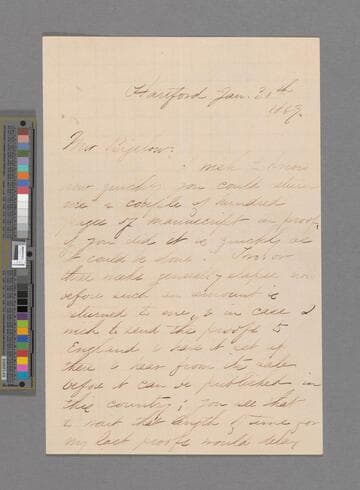 Hartford Jan. 30th
1869.
Mr Bigelow:
I wish to know
how quickly you could return
me a couple of hundred
pages of manuscript in proof,
if you did it as quickly as
it could be done. Two or
three weeks generally elapse now
before such an amount is
returned to me, & in case I
wish to send the proofs to
England to have it set up
there to hear from its sale
before it can be published in
this country; you see that
to wait that length of time for
my last proofs would delay